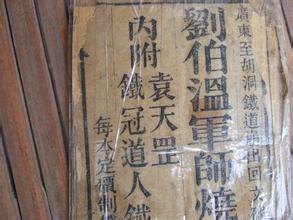 廣東至胡洞鐵道
劉伯溫軍師燒
內附
袁天罡
鐵冠道人鐵
每本定價制